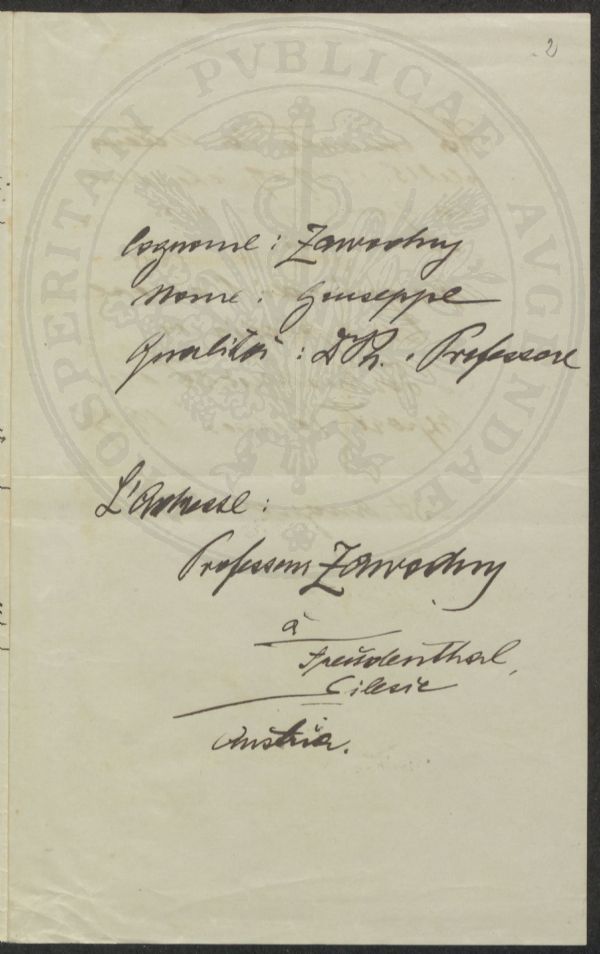 2
PROSPERITATI PUBLICAE AUGENDAE
Cognome : Zawodny
Nome : Giuseppe
Qualität : DPh. , Professore
L'Adresse :
Professeur Zawodny
à
Freŭdenthal,
Silesie
Austria.